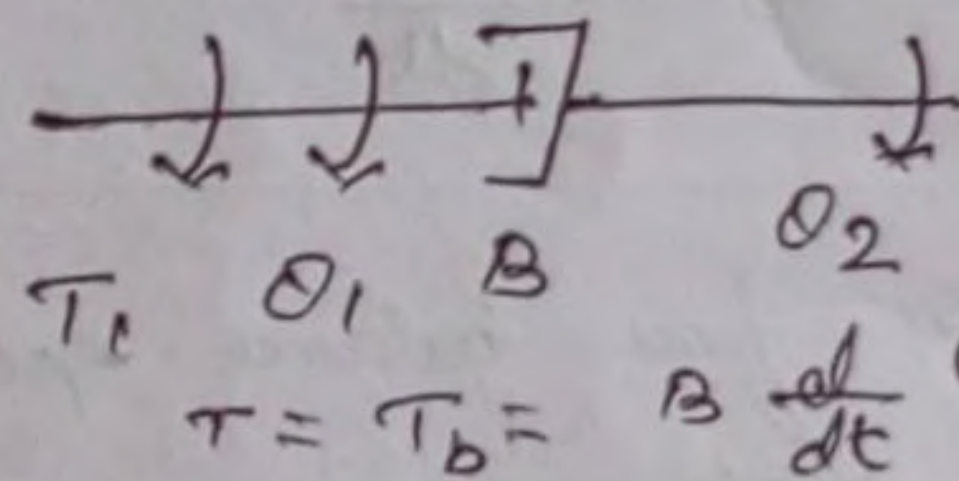 T₁ θ₁ B θ₂
T = T_b = B d/dt (